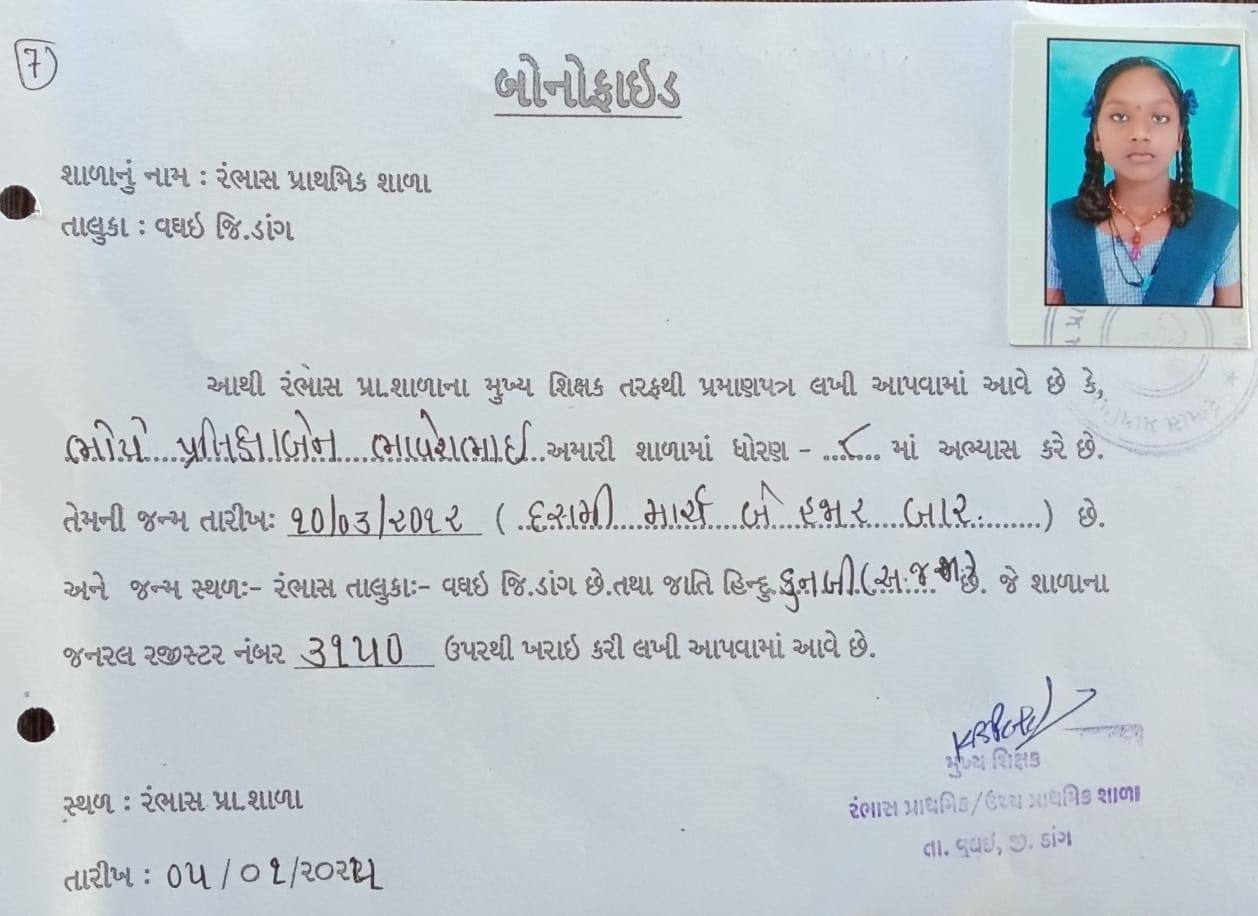 7
બોનોફાઇડ
શાળાનું નામ : રંભાસ પ્રાથમિક શાળા
તાલુકા : વઘઇ જિ.ડાંગ
આથી રંભાસ પ્રા.શાળાના મુખ્ય શિક્ષક તરફથી પ્રમાણપત્ર લખી આપવામાં આવે છે કે,
ભોયે પ્રતિક્ષાબેન ભાવેશભાઇ અમારી શાળામાં ધોરણ - ૮ માં અભ્યાસ કરે છે.
તેમની જન્મ તારીખઃ ૧૦/૦૩/૨૦૧૨ ( દસમી માર્ચ બે હજાર બાર ) છે.
અને જન્મ સ્થળઃ- રંભાસ તાલુકાઃ- વઘઇ જિ.ડાંગ છે.તથા જાતિ હિન્દુ કુનબી(અ.જ.જા)છે. જે શાળાના
જનરલ રજીસ્ટર નંબર ૩૧૫૦ ઉપરથી ખરાઇ કરી લખી આપવામાં આવે છે.
મુખ્ય શિક્ષક
રંભાસ પ્રાથમિક/ઉચ્ચ પ્રાથમિક શાળા
તા. વઘઇ, જી. ડાંગ
સ્થળ : રંભાસ પ્રા.શાળા
તારીખ : ૦૫/૦૧/૨૦૨૫